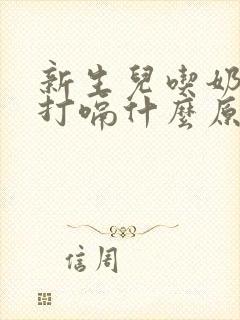 新生兒喫奶
打嗝什麼原
信周